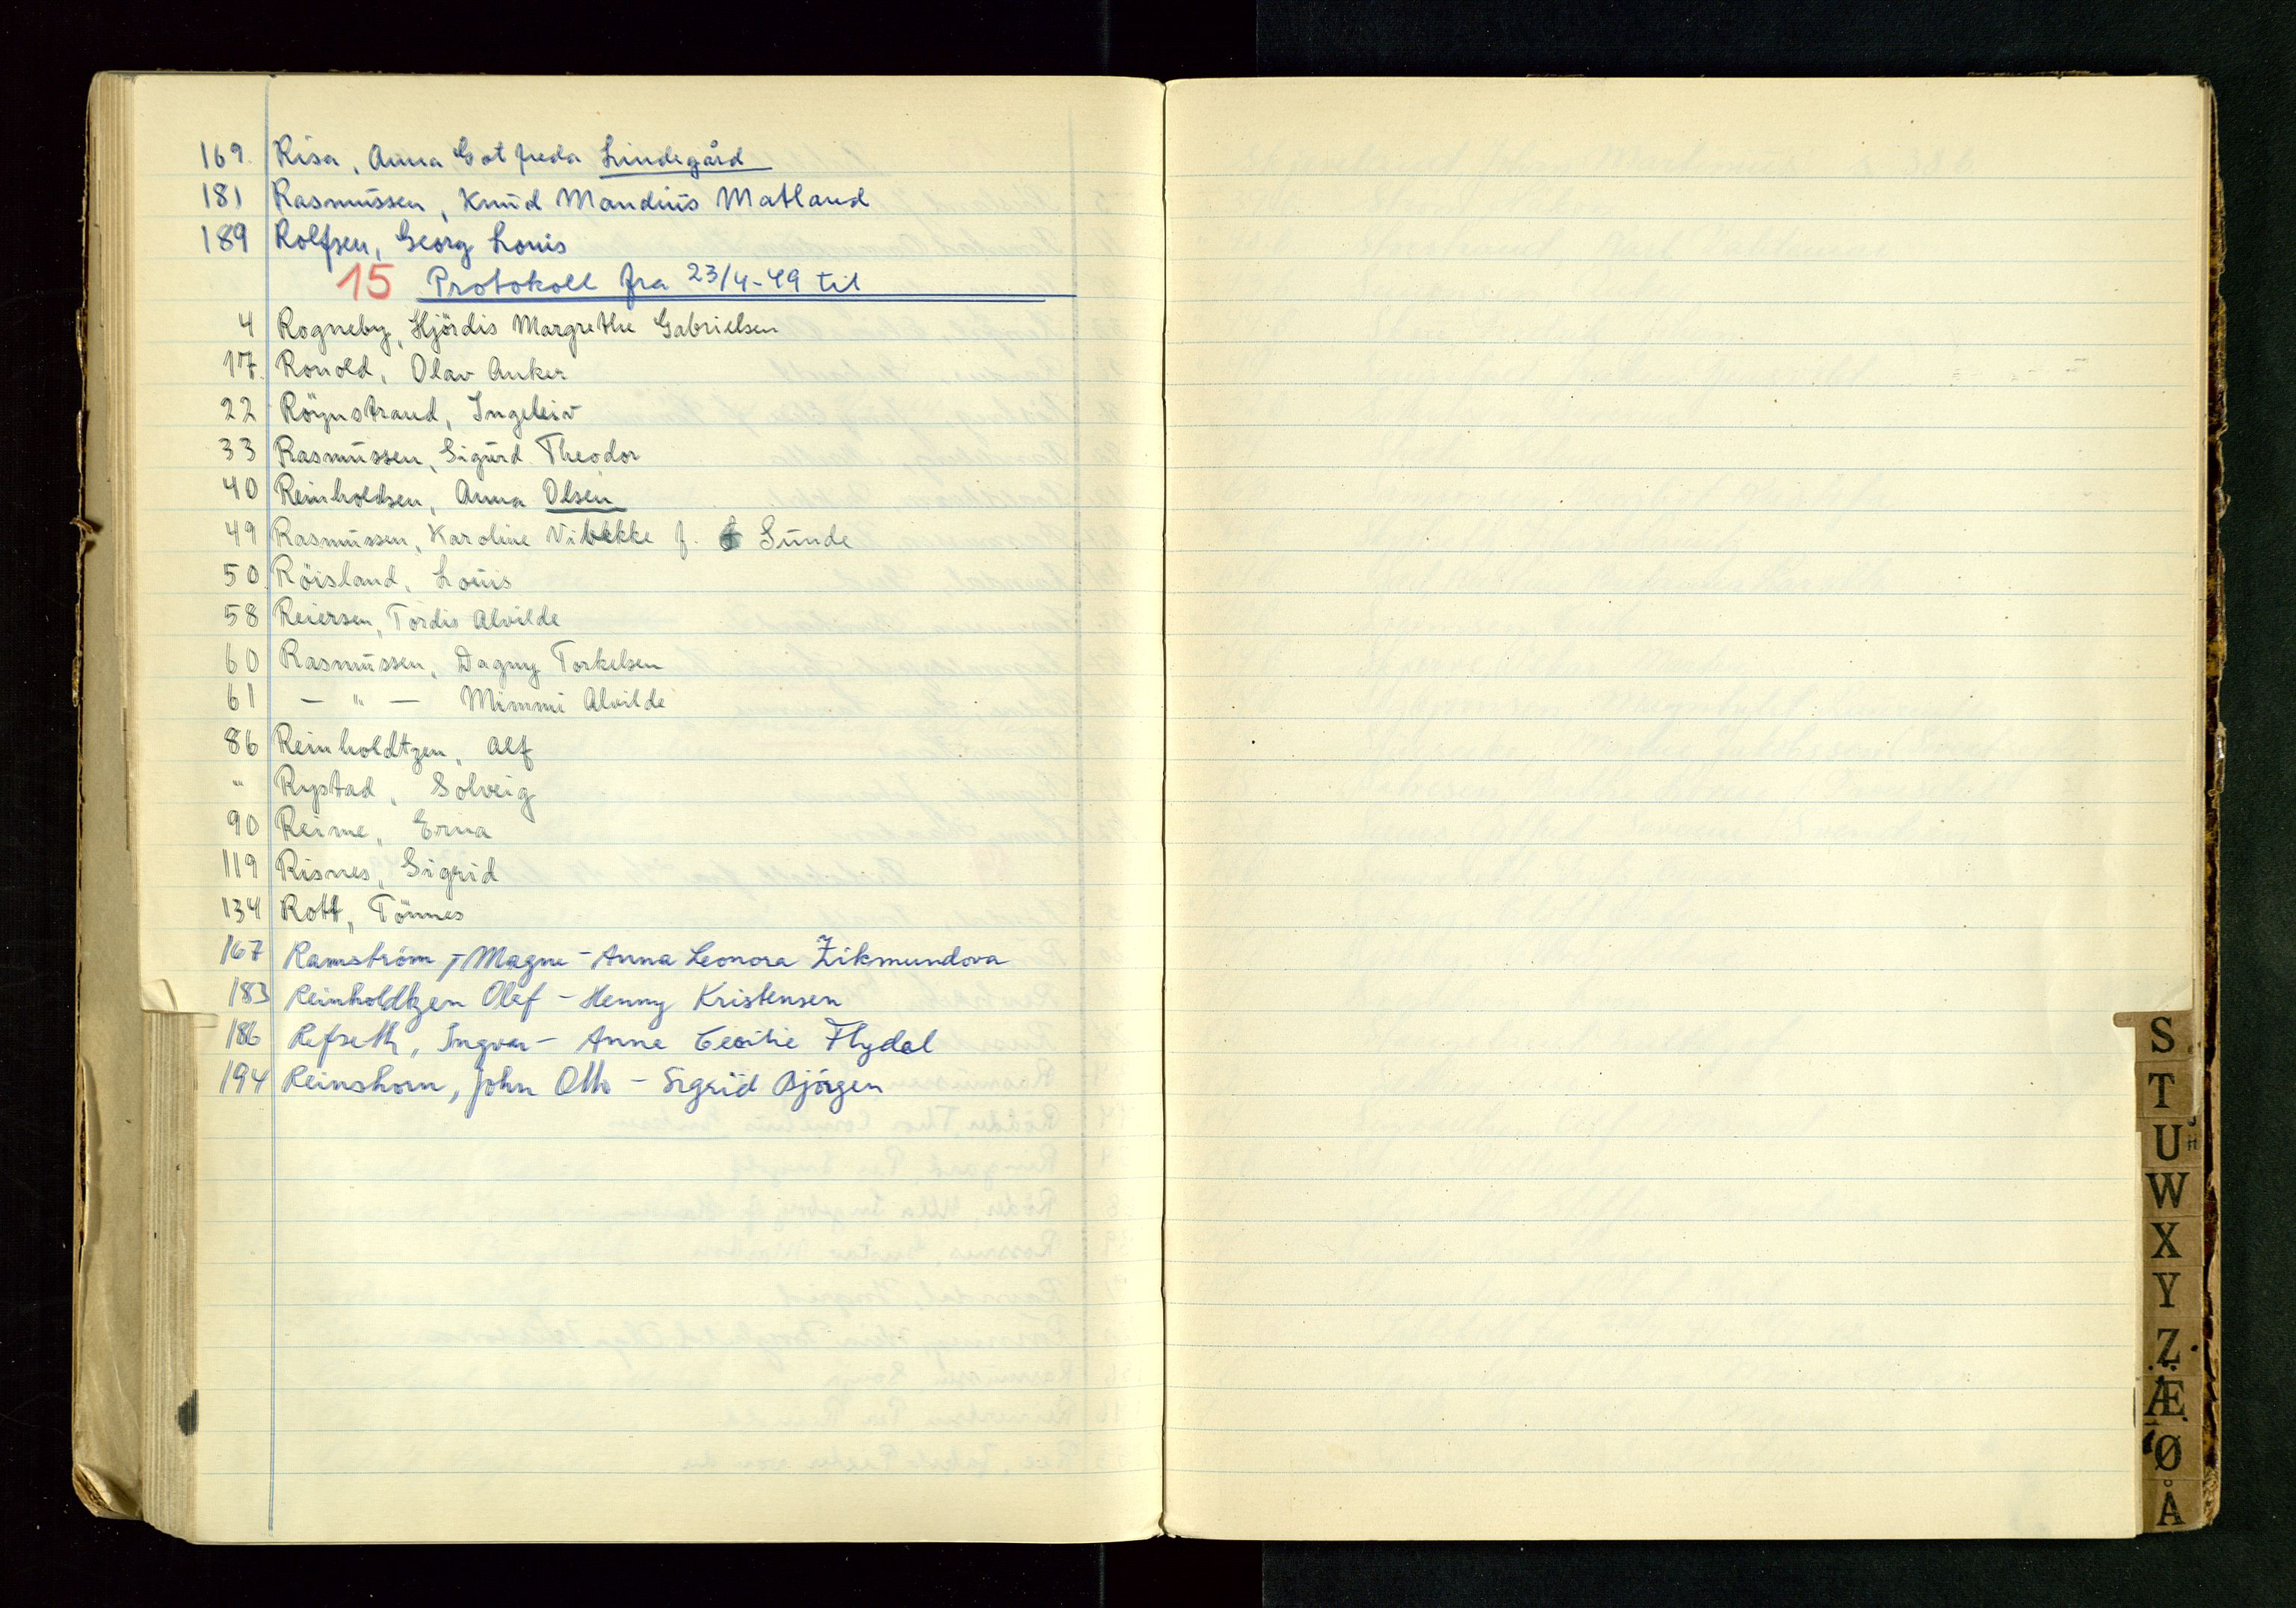 169. Risa, Anna Gotfreda Lindegård
181 Rasmussen, Knud Mandius Matland
189 Rolfsen, Georg Louis
15 Protokoll fra 23/4-49 til
4 Rogneby, Hjördis Margrethe Gabrielsen
17. Ronold, Olav Anker
22 Röynstrand, Ingeleiv
33 Rasmussen, Sigurd Theodor
40 Reinholdsen, Anna Olsen
49 Rasmussen, Karoline Vibekke f. Sunde
50. Röisland, Louis
58 Reiersen, Tordis Alvilde
60 Rasmussen, Dagny Torkelsen
61 — " — Mimmi Alvilde
86 Reinholdtzen, Alf
" Rystad, Solveig
90 Reime, Erna
119 Risnes, Sigrid
134 Rott, Tönnes
167 Ramström, T Magne - Anna Leonora Zikmundova
183 Reinholdtzen Olaf - Henny Kristensen
186 Refseth, Ingvar - Anne Cecilie Flydal
194 Reinshorn, John Otto - Sigrid Bjørgen
S
T
U
W
X
Y
Z
Æ
Ø
Å